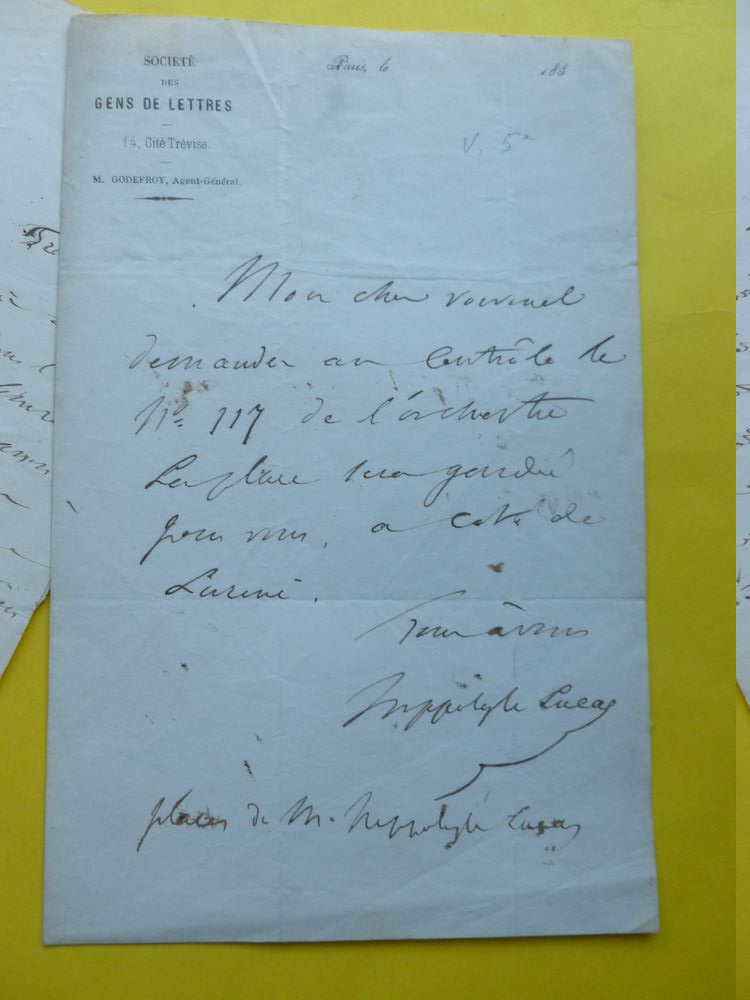 SOCIÉTÉ
DES
GENS DE LETTRES
14, Cité Trévise.
M. GODEFROY, Agent-Général.
Paris, le 185
V. 5e
Mon cher
demander au Contrôle le
No 117 de l'orchestre
La place sera gardée
pour vous, a coté de
Luriné.
Tout à vous
Hippolyte Lucas
places de M. Hippolyte Lucas